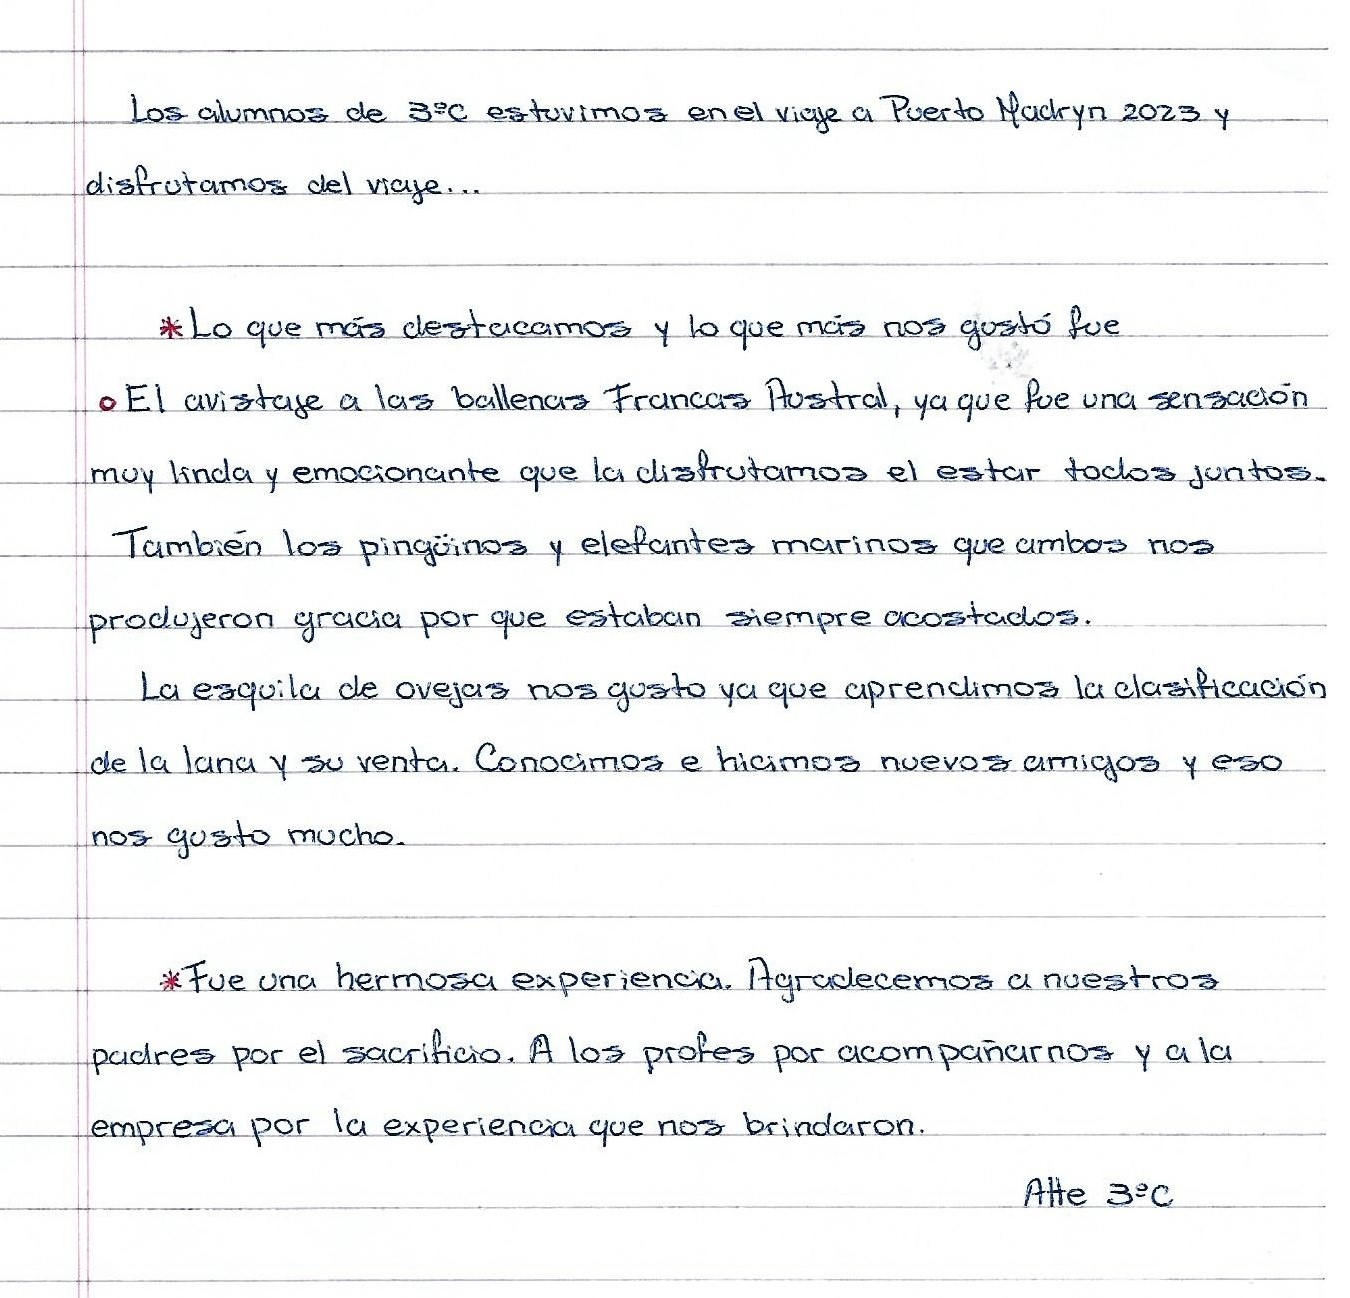 Los alumnos de 3ºC estuvimos en el viaje a Puerto Madryn 2023 y
disfrutamos del viaje...
*Lo que más destacamos y lo que más nos gustó fue
° El avistaje a las ballenas Francas Austral, ya que fue una sensación
muy linda y emocionante que la disfrutamos el estar todos juntos.
También los pingüinos y elefantes marinos que ambos nos
produjeron gracia por que estaban siempre acostados.
La esquila de ovejas nos gusto ya que aprendimos la clasificación
de la lana y su venta. Conocimos e hicimos nuevos amigos y eso
nos gusto mucho.
*Fue una hermosa experiencia. Agradecemos a nuestros
padres por el sacrificio. A los profes por acompañarnos y a la
empresa por la experiencia que nos brindaron.
Atte 3ºC